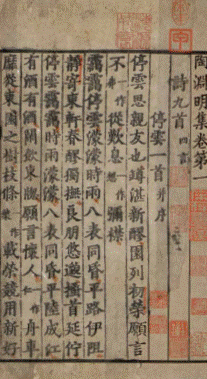 陶淵明集卷第一
詩九首四言
停雲一首并序
停雲思親友也罇湛新醪園列初榮願言
不從歎息一作想彌襟
靄靄停雲濛濛時雨八表同昏平路伊阻
靜寄東軒春醪獨撫良朋悠邈搔首延佇
停雲靄靄時雨濛濛八表同昏平陸成江
有酒有酒閒飲東牕願言懷人舟車
靡從東園之樹枝條一作載榮競用新好